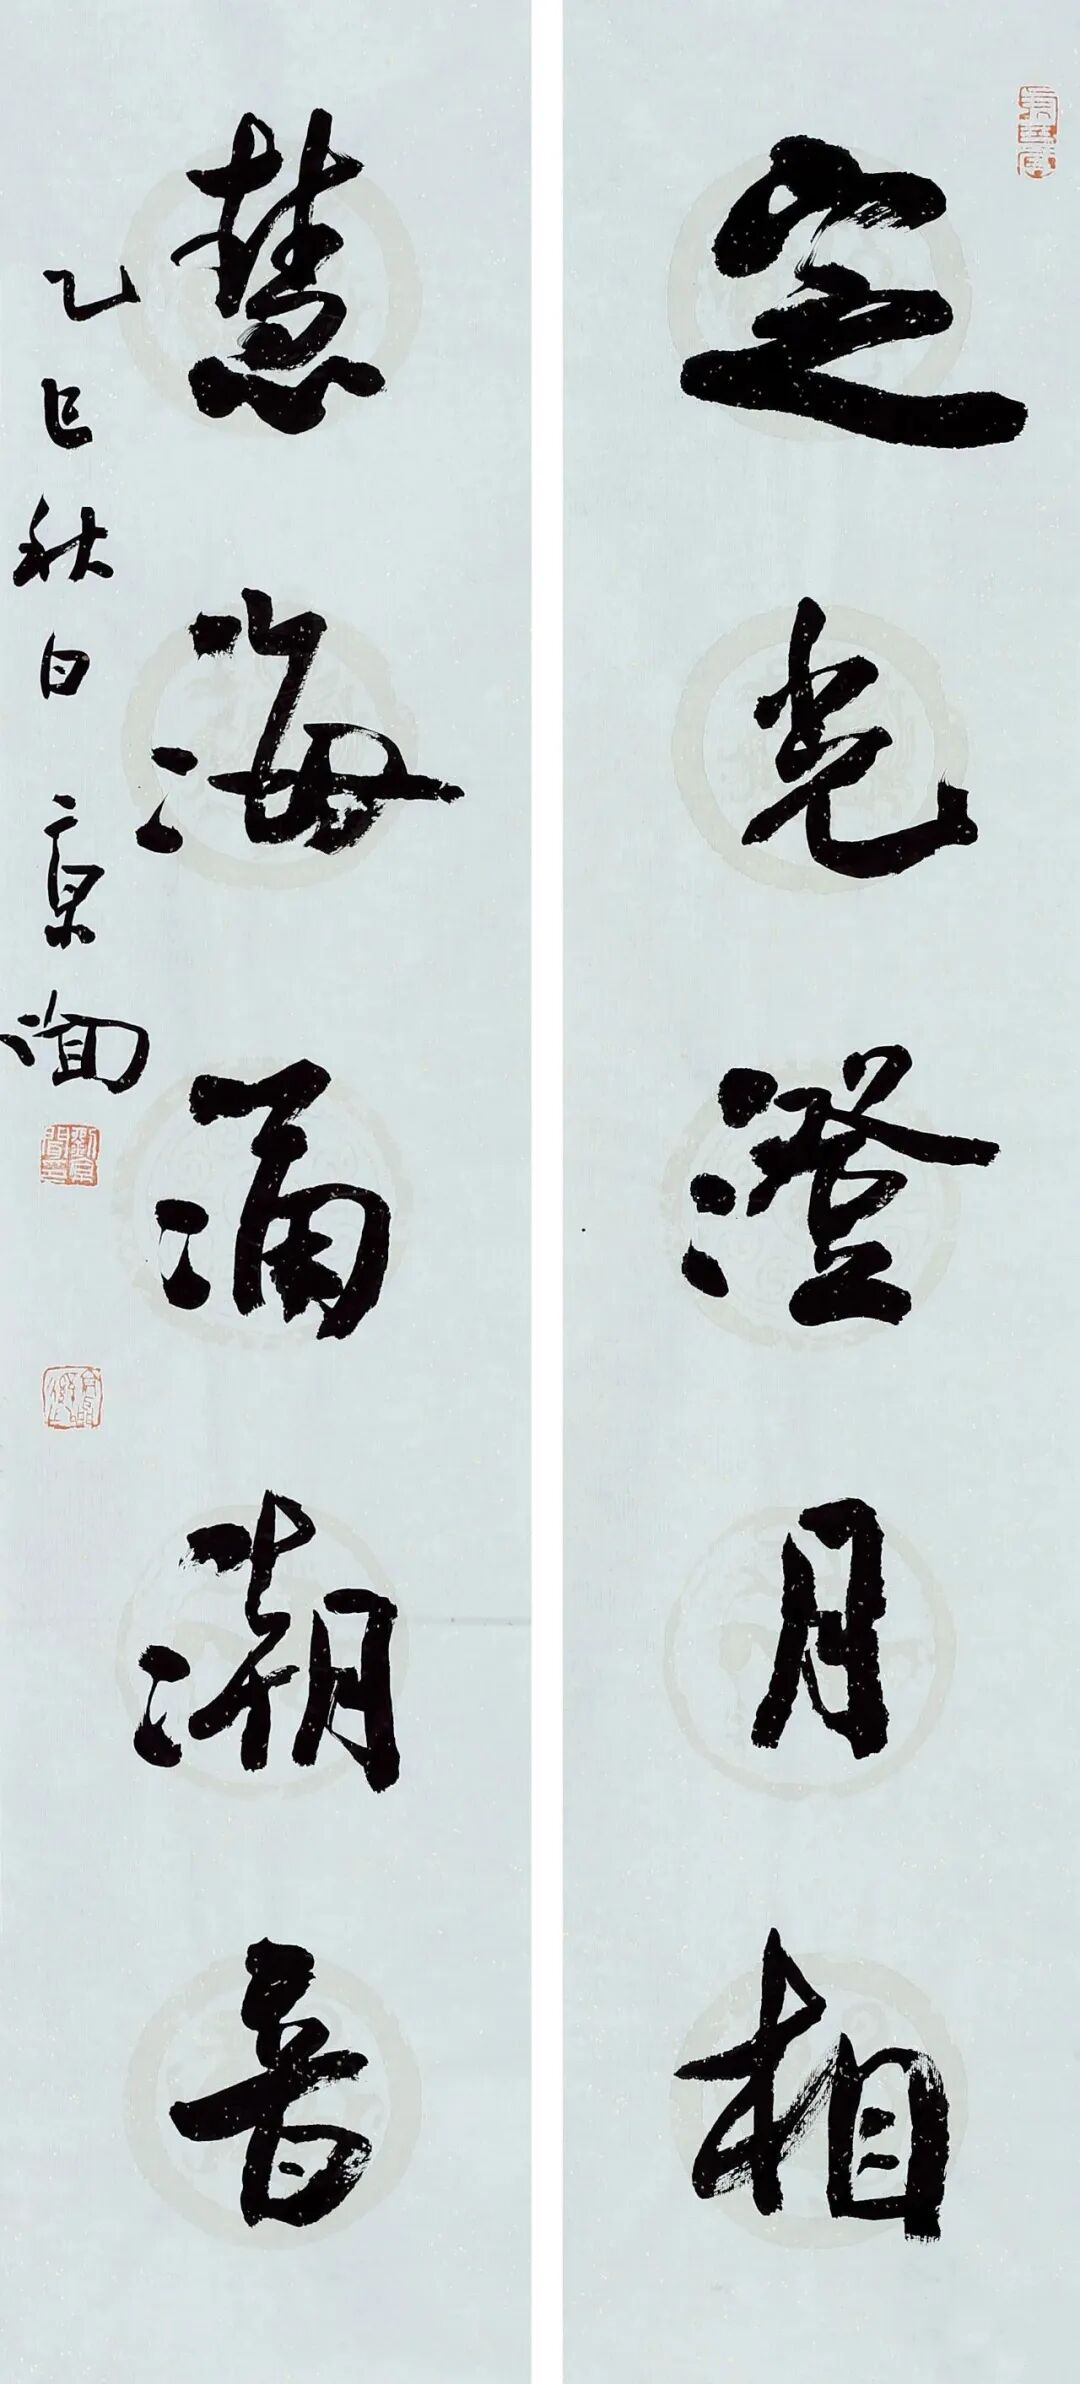 定光澄月相
慧海涌潮音
乙巳秋日京闻